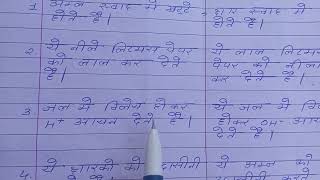 1 अम्ल स्वाद में खट्टे होते हैं।
क्षार स्वाद में होते हैं।
2 ये नीले लिटमस पेपर को लाल कर देते हैं।
ये लाल लिटमस पेपर को नीला कर देते हैं।
3 जल में विलेय होकर H+ आयन देते हैं।
ये जल में विलेय होकर OH- आयन देते हैं।
4. ये क्षारकों को
ये अम्ल को